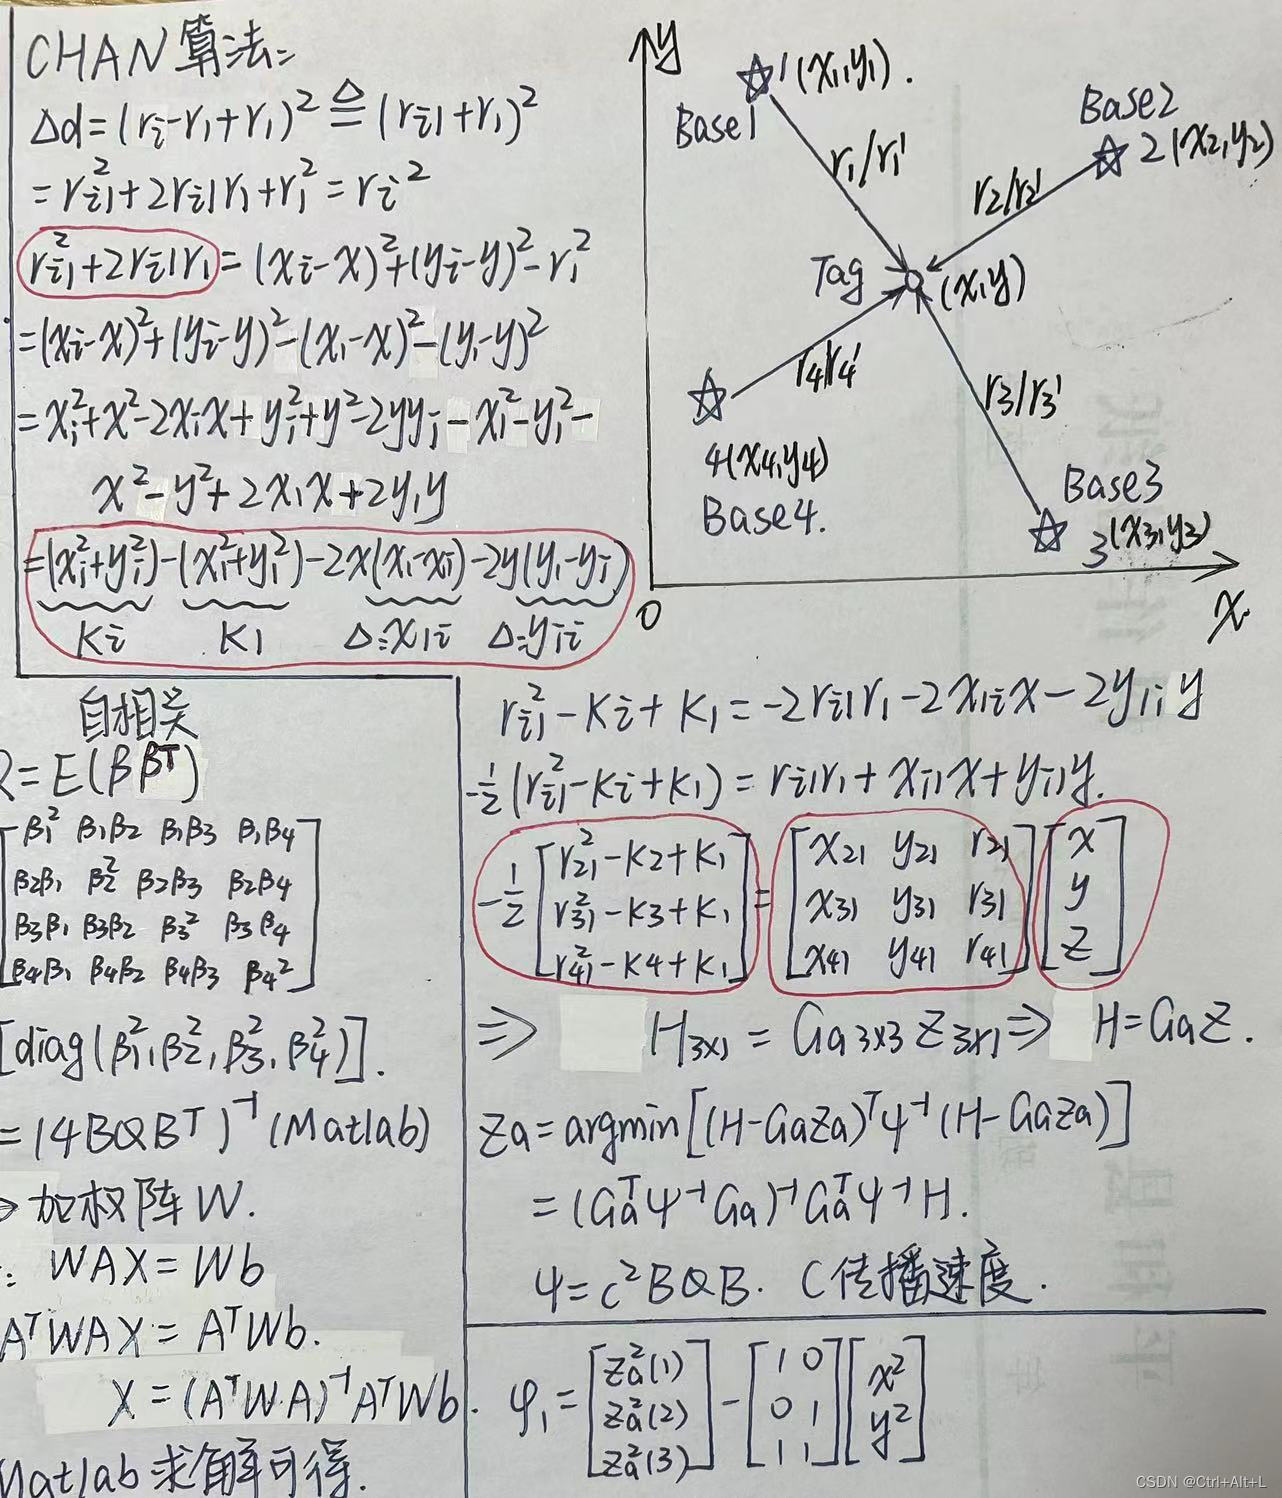 CHAN算法:
Δd=(ri-r1+r1)² ≜ (ri1+r1)²
=ri1²+2ri1r1+r1²=ri²
ri1²+2ri1r1=(xi-x)²+(yi-y)²-r1²
=(xi-x)²+(yi-y)²-(x1-x)²-(y1-y)²
=xi²+x²-2xix+yi²+y²-2yyi-x1²-y1²-
x²-y²+2x1x+2y1y
=(xi²+yi²)-(x1²+y1²)-2x(x1-xi)-2y(y1-yi)
Ki K1 Δ:x1i Δ:y1i
y
1(x1,y1).
Base1
Base2
2(x2,y2)
r1/r1'
r2/r2'
Tag (x,y)
r4/r4'
r3/r3'
4(x4,y4)
Base4.
Base3
3(x3,y3)
0
x.
自相关
Q=E(ββᵀ)
β1² β1β2 β1β3 β1β4
β2β1 β2² β2β3 β2β4
β3β1 β3β2 β3² β3β4
β4β1 β4β2 β4β3 β4²
[diag(β1²,β2²,β3²,β4²)].
=(4BQBᵀ)⁻¹(Matlab)
加权阵W.
: WAX=Wb
AᵀWAX=AᵀWb.
X=(AᵀWA)⁻¹AᵀWb.
Matlab求解可得.
ri1²-Ki+K1=-2ri1r1-2x1ix-2y1iy
-½(ri1²-Ki+K1)=ri1r1+xi1x+yi1y.
-½[r21²-K2+K1]=[x21 y21 r21][x]
[r31²-K3+K1] [x31 y31 r31][y]
[r41²-K4+K1] [x41 y41 r41][z]
⇒ H3x1=Ga3x3Z3x1⇒ H=GaZ.
Za=argmin[(H-GaZa)ᵀψ⁻¹(H-GaZa)]
=(Gaᵀψ⁻¹Ga)⁻¹Gaᵀψ⁻¹H.
ψ=c²BQB. C传播速度.
φ1=[Za²(1)]-[1 0][x²]
[Za²(2)] [0 1][y²]
[Za²(3)] [1 1]
CSDN @Ctrl+Alt+L